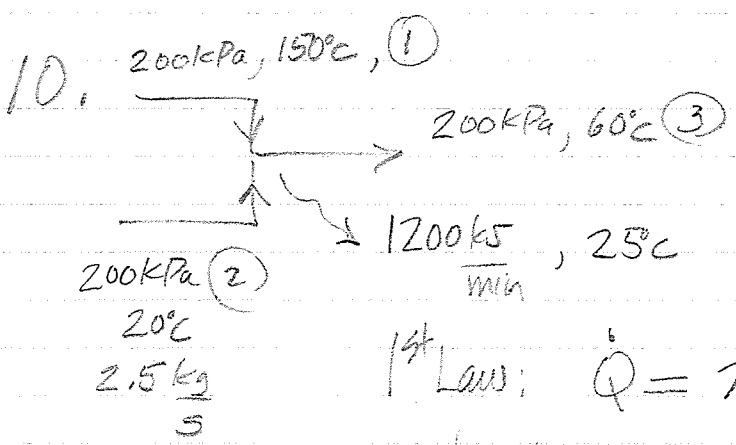 10. 200kPa, 150°C, ①
200kPa, 60°C ③
1200 kJ/min, 25°C
200kPa ②
20°C
2.5 kg/s
1st Law: Q̇ =